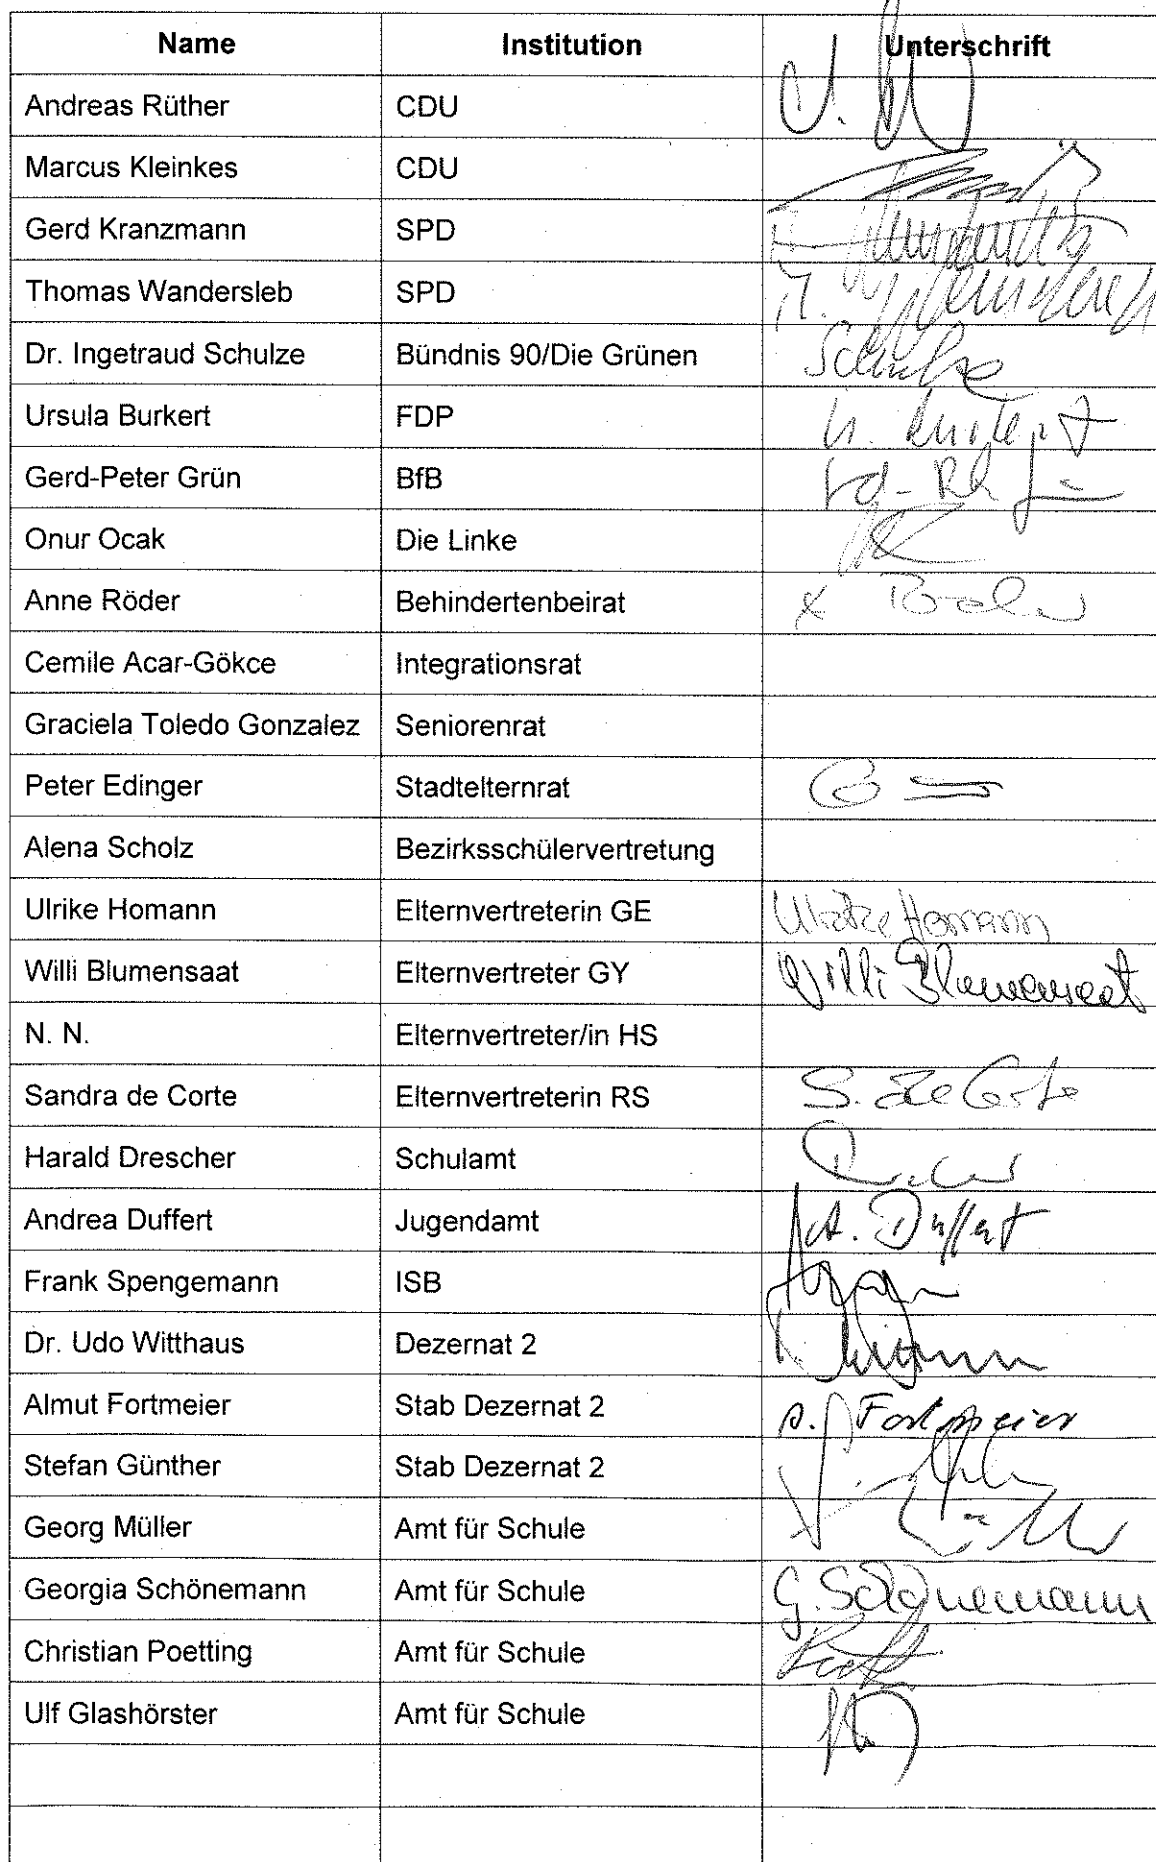 Name Institution Unterschrift
Andreas Rüther CDU
Marcus Kleinkes CDU
Gerd Kranzmann SPD
Thomas Wandersleb SPD
Dr. Ingetraud Schulze Bündnis 90/Die Grünen Schulze
Ursula Burkert FDP
Gerd-Peter Grün BfB
Onur Ocak Die Linke
Anne Röder Behindertenbeirat
Cemile Acar-Gökce Integrationsrat
Graciela Toledo Gonzalez Seniorenrat
Peter Edinger Stadtelternrat
Alena Scholz Bezirksschülervertretung
Ulrike Homann Elternvertreterin GE Ulrike Homann
Willi Blumensaat Elternvertreter GY Willi Blumensaat
N. N. Elternvertreter/in HS
Sandra de Corte Elternvertreterin RS S. de Corte
Harald Drescher Schulamt
Andrea Duffert Jugendamt A. Duffert
Frank Spengemann ISB
Dr. Udo Witthaus Dezernat 2
Almut Fortmeier Stab Dezernat 2 A. Fortmeier
Stefan Günther Stab Dezernat 2
Georg Müller Amt für Schule
Georgia Schönemann Amt für Schule G. Schönemann
Christian Poetting Amt für Schule
Ulf Glashörster Amt für Schule